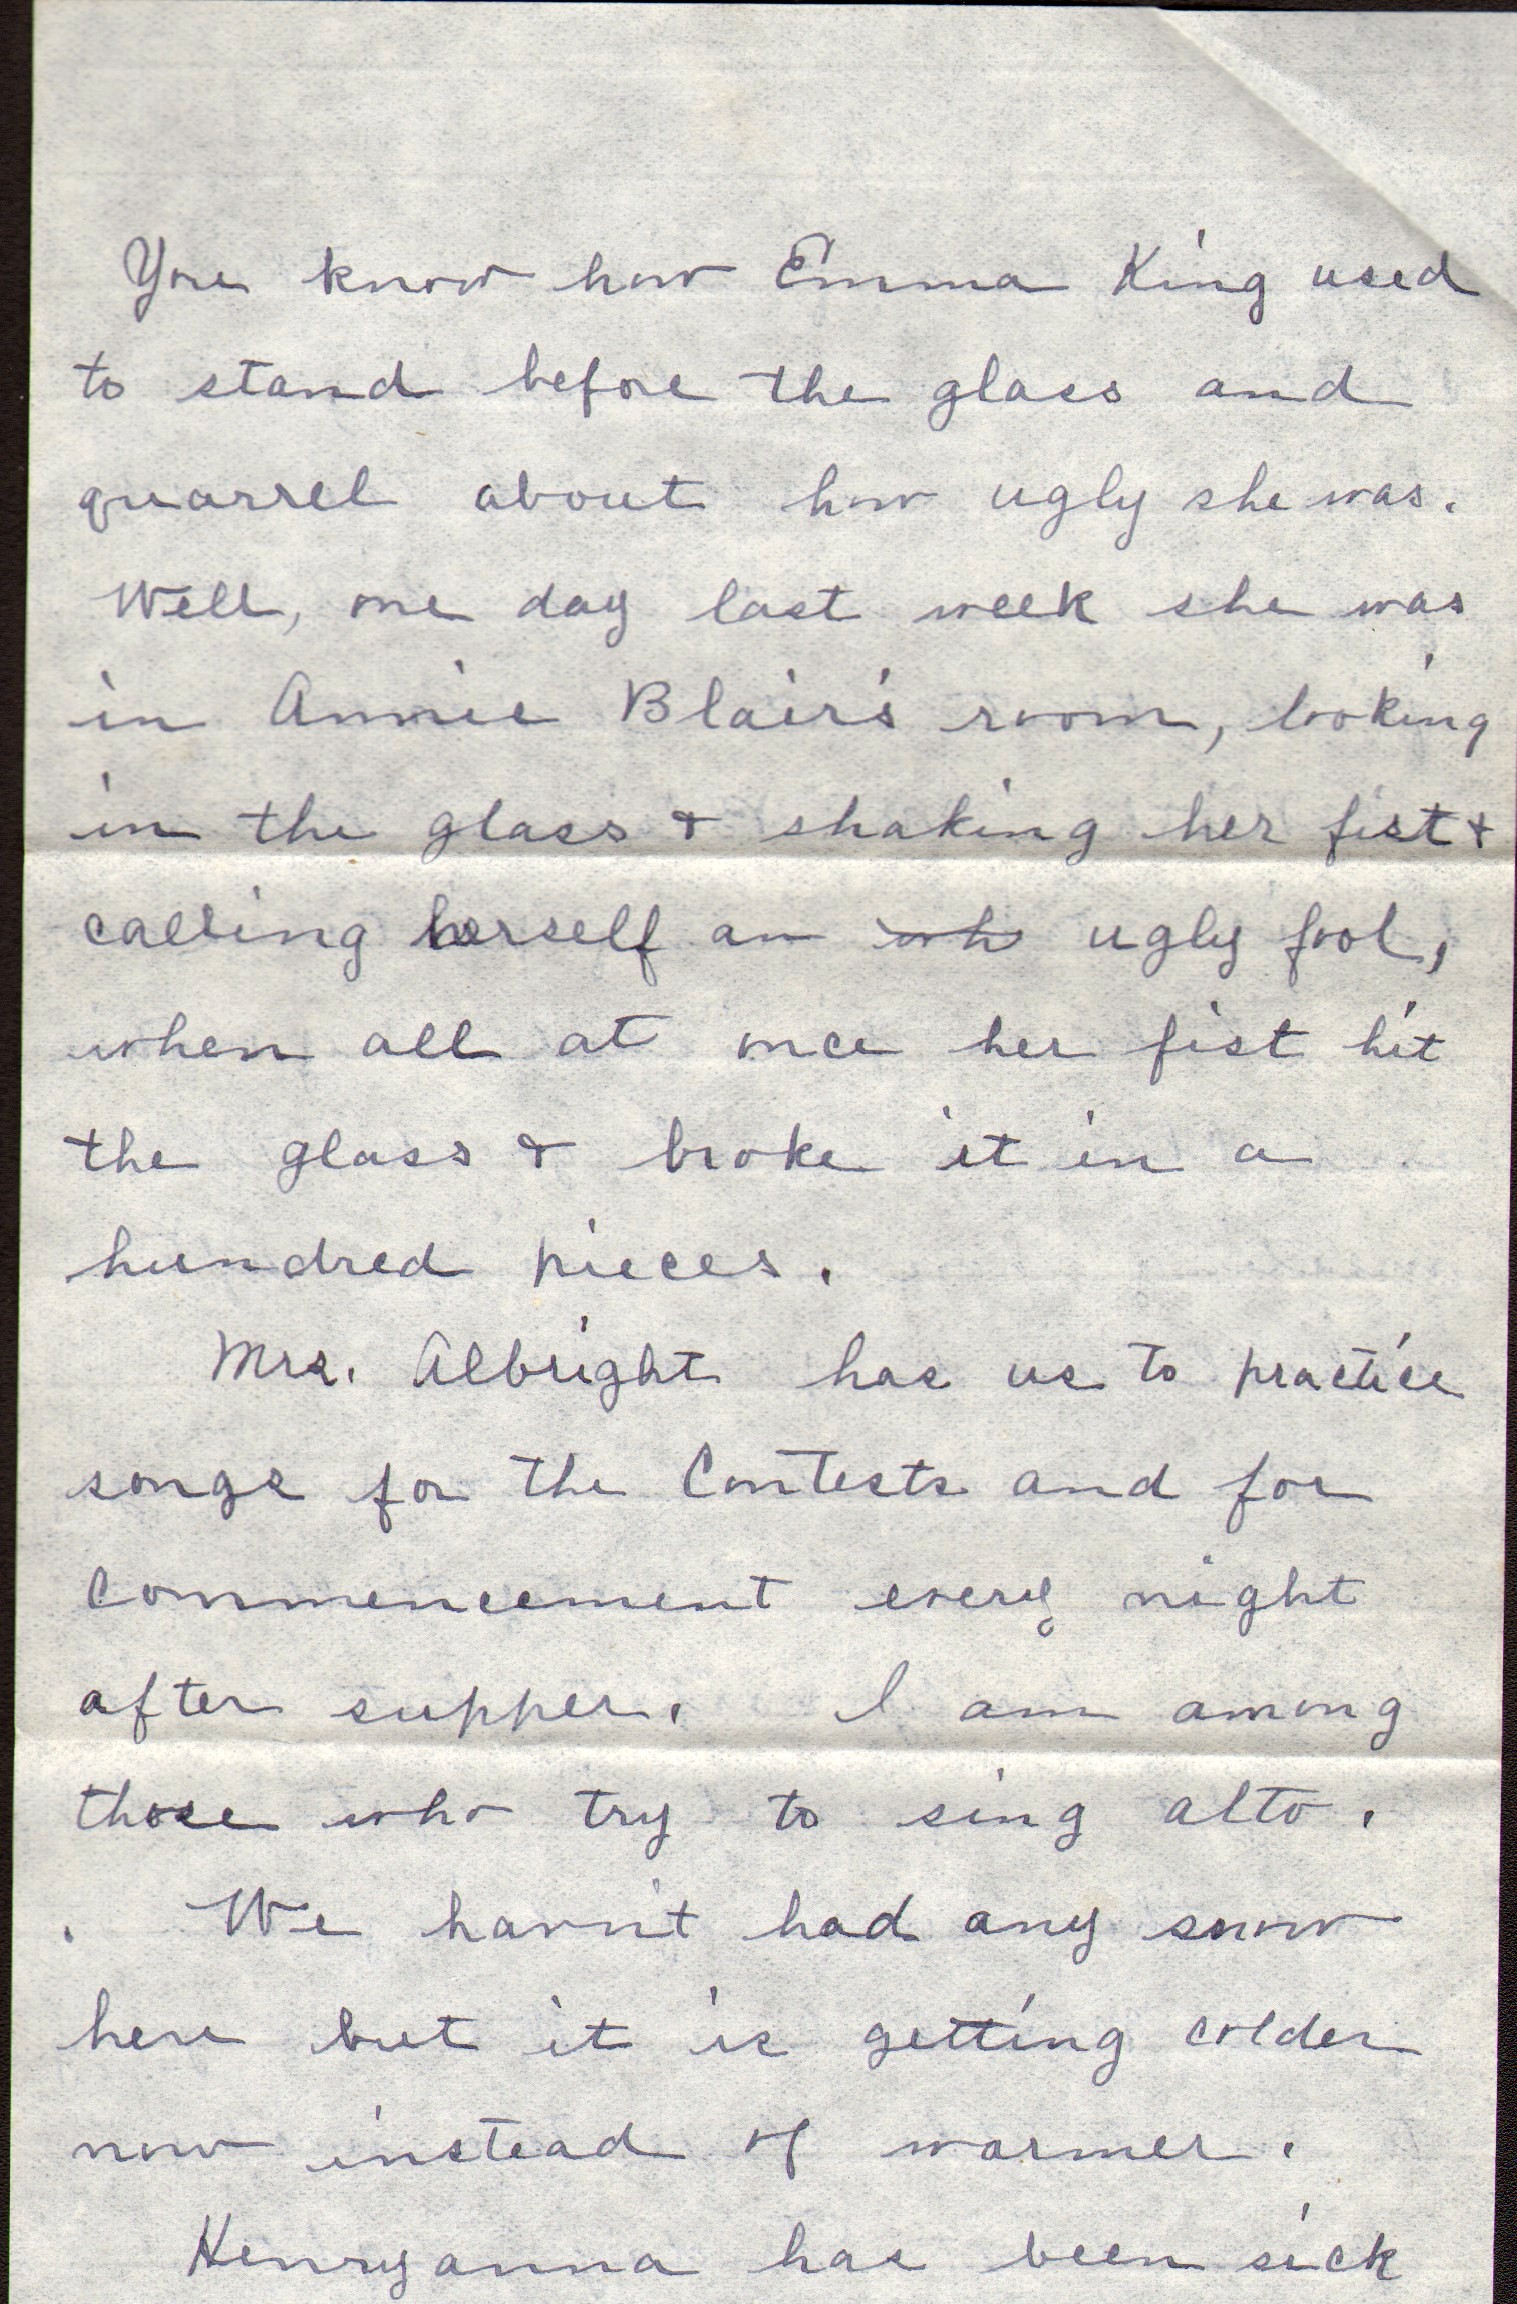 You know how Emma King used
to stand before the glass and
quarrel about how ugly she was.
Well, one day last week she was
in Annie Blair's room, looking
in the glass & shaking her fist &
calling herself an wh ugly fool,
when all at once her fist hit
the glass & broke it in a
hundred pieces.
Mrs. Albright has us to practice
songs for the Contests and for
Commencement every night
after supper. I am among
those who try to sing alto.
We havn't had any snow
here but it is getting colder
now instead of warmer.
Henryanna has been sick